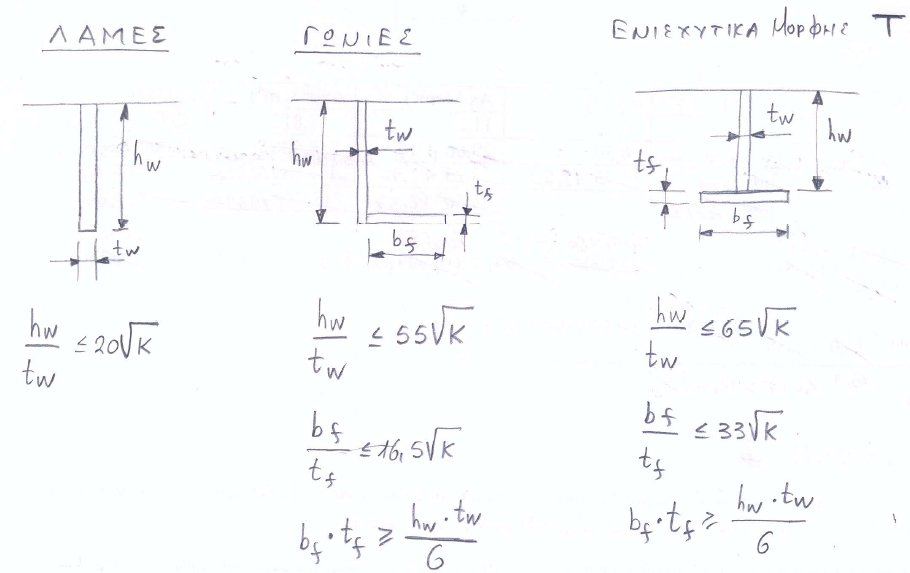 ΛΑΜΕΣ
hw
tw
hw/tw ≤ 20√K
ΓΩΝΙΕΣ
hw
tw
tf
bf
hw/tw ≤ 55√K
bf/tf ≤ 16,5√K
bf·tf ≥ hw·tw/6
ΕΝΙΣΧΥΤΙΚΑ ΜΟΡΦΗΣ T
tw
hw
tf
bf
hw/tw ≤ 65√K
bf/tf ≤ 33√K
bf·tf ≥ hw·tw/6